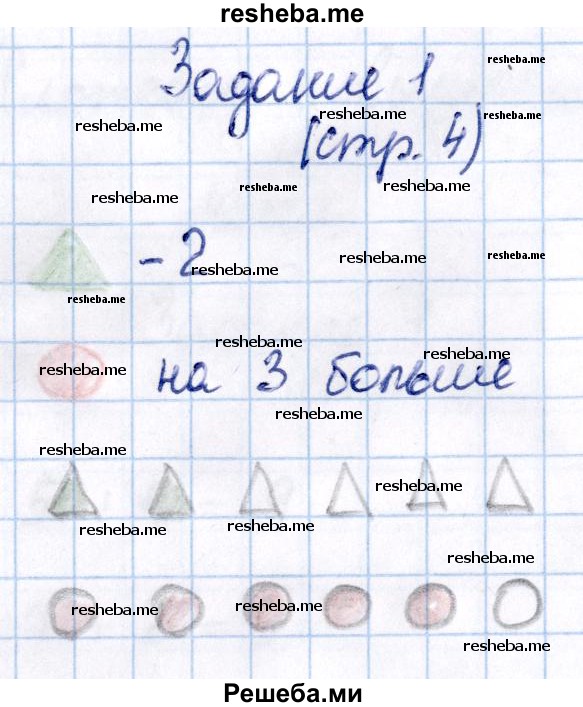 resheba.me
Задание 1
resheba.me
resheba.me
resheba.me
resheba.me
(стр. 4)
resheba.me
resheba.me
resheba.me
- 2
resheba.me
resheba.me
resheba.me
resheba.me
resheba.me
resheba.me
resheba.me
на 3 больше
resheba.me
resheba.me
resheba.me
resheba.me
resheba.me
resheba.me
resheba.me
resheba.me
resheba.me
Решеба.ми